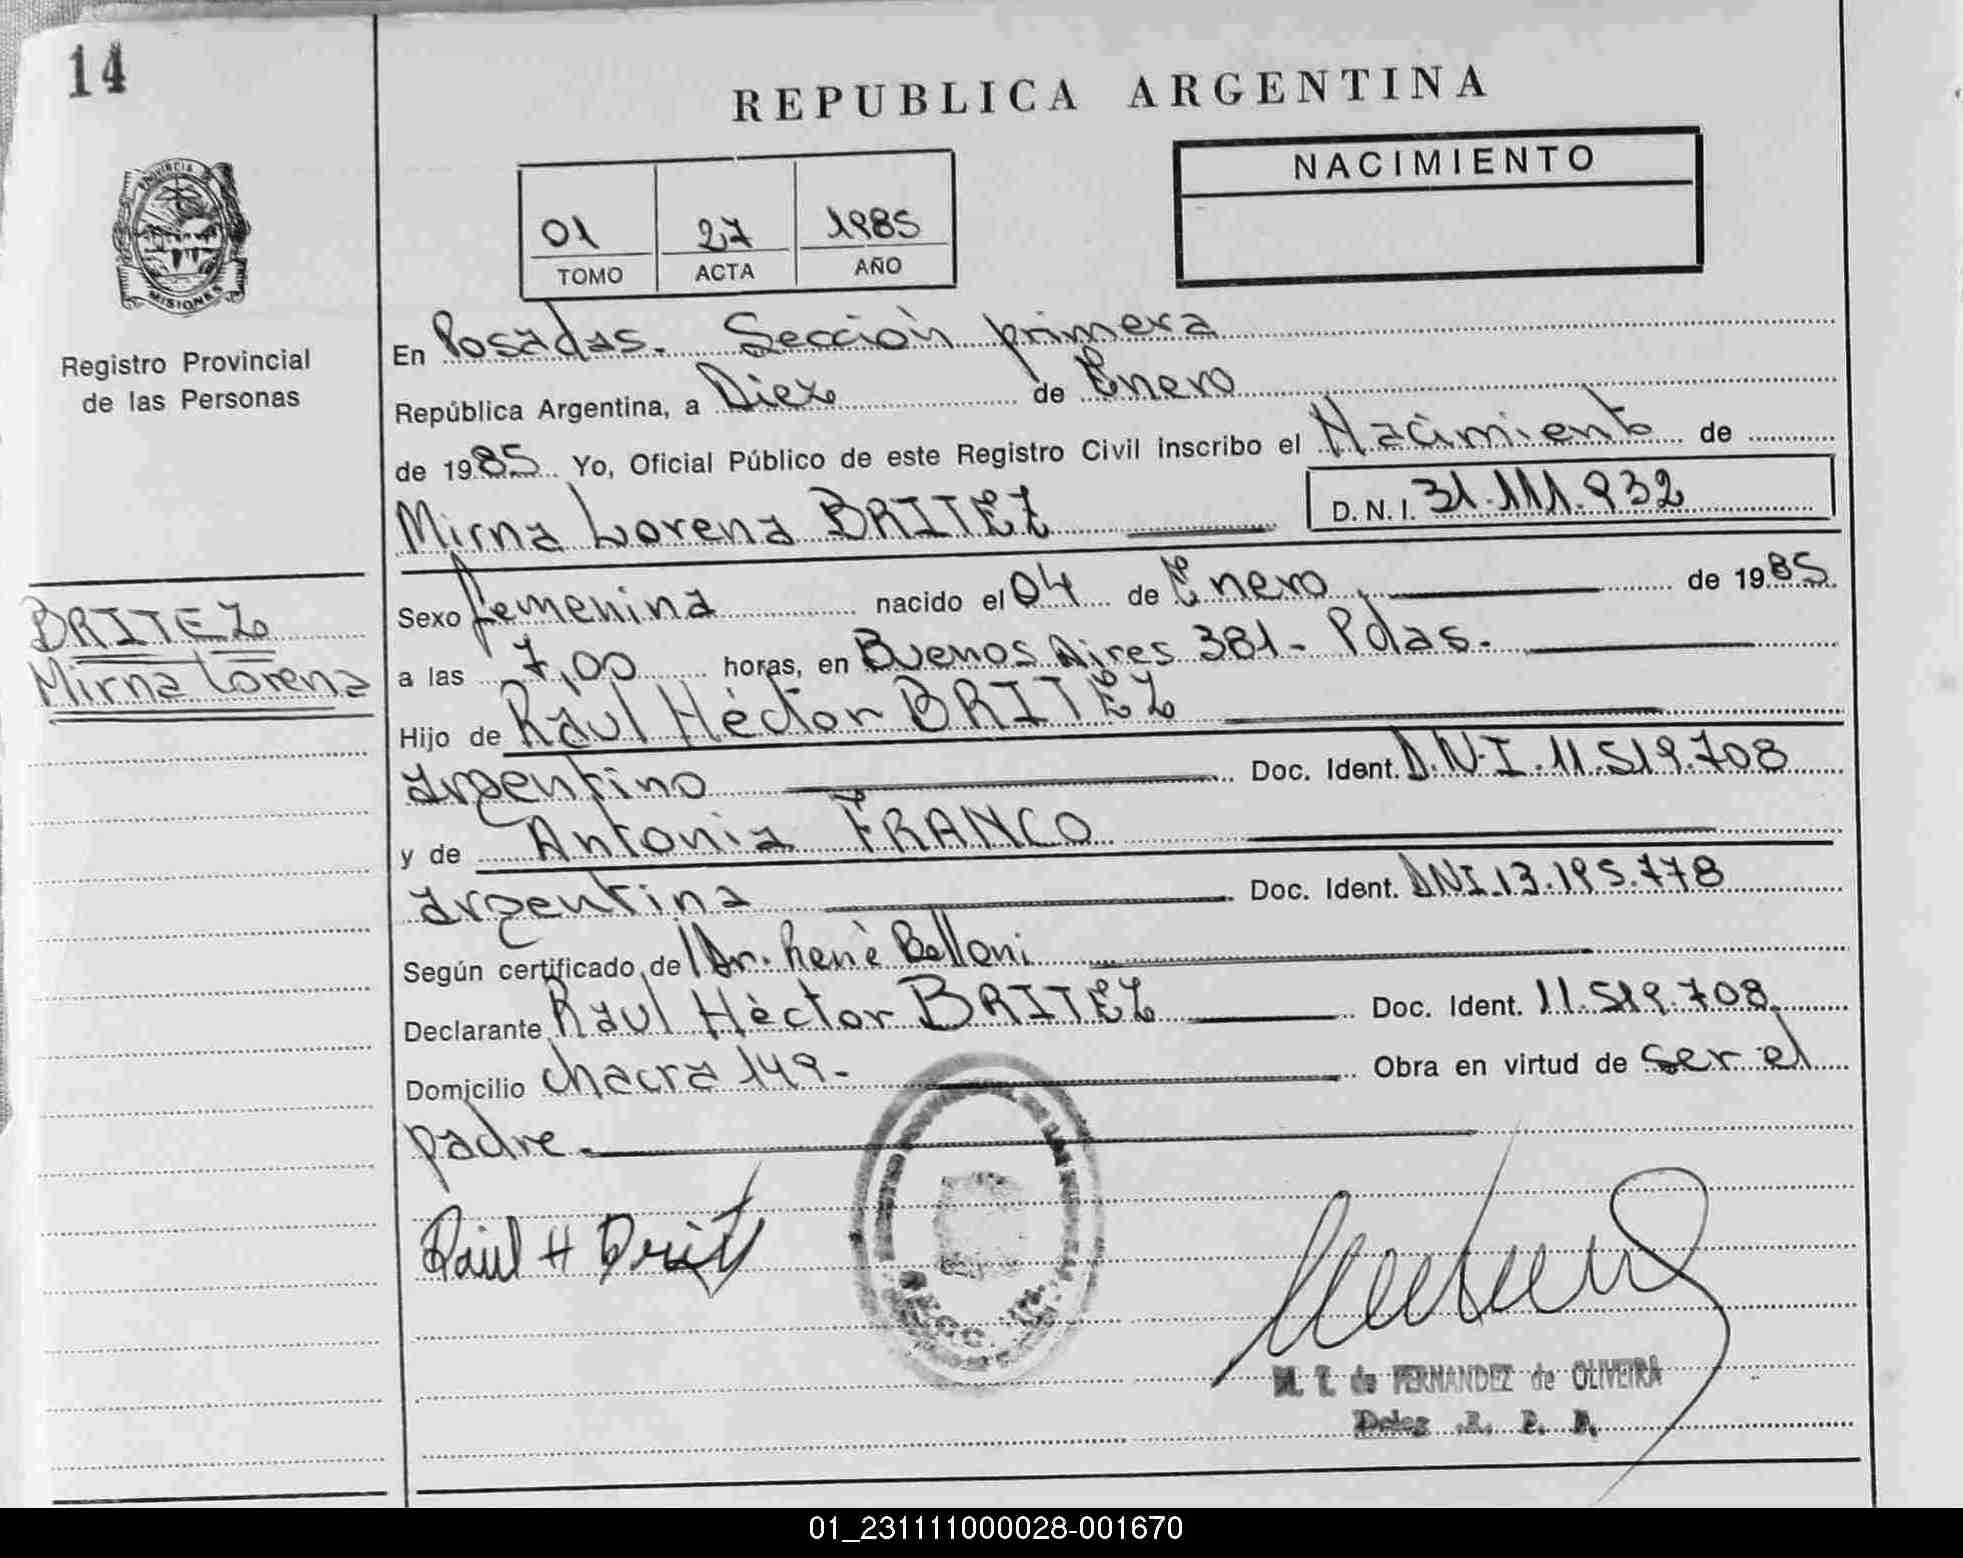 14
REPUBLICA ARGENTINA
PROVINCIA
MISIONES
Registro Provincial
de las Personas
NACIMIENTO
01 27 1985
TOMO ACTA AÑO
En Posadas. Sección primera
República Argentina, a Diez de Enero
de 1985 Yo, Oficial Público de este Registro Civil inscribo el Nacimiento de
Mirna Lorena BRITEZ D.N.I. 31.111.932
BRITEZ
Mirna Lorena
Sexo femenina nacido el 04 de Enero, de 1985
a las 7,00 horas, en Buenos Aires 381 - Pdas.
Hijo de Raul Héctor BRITEZ
argentino Doc. Ident. D.N.I. 11.519.708
y de Antonia FRANCO
argentina Doc. Ident. DNI.13.195.778
Según certificado de Dr. Renè Belloni
Declarante Raul Hèctor BRITEZ Doc. Ident. 11.519.708
Domicilio chacra 149.- Obra en virtud de ser el
padre.
Raul H Brit
M. T. de FERNANDEZ de OLIVEIRA
Deleg. R. P. P.
01_231111000028-001670